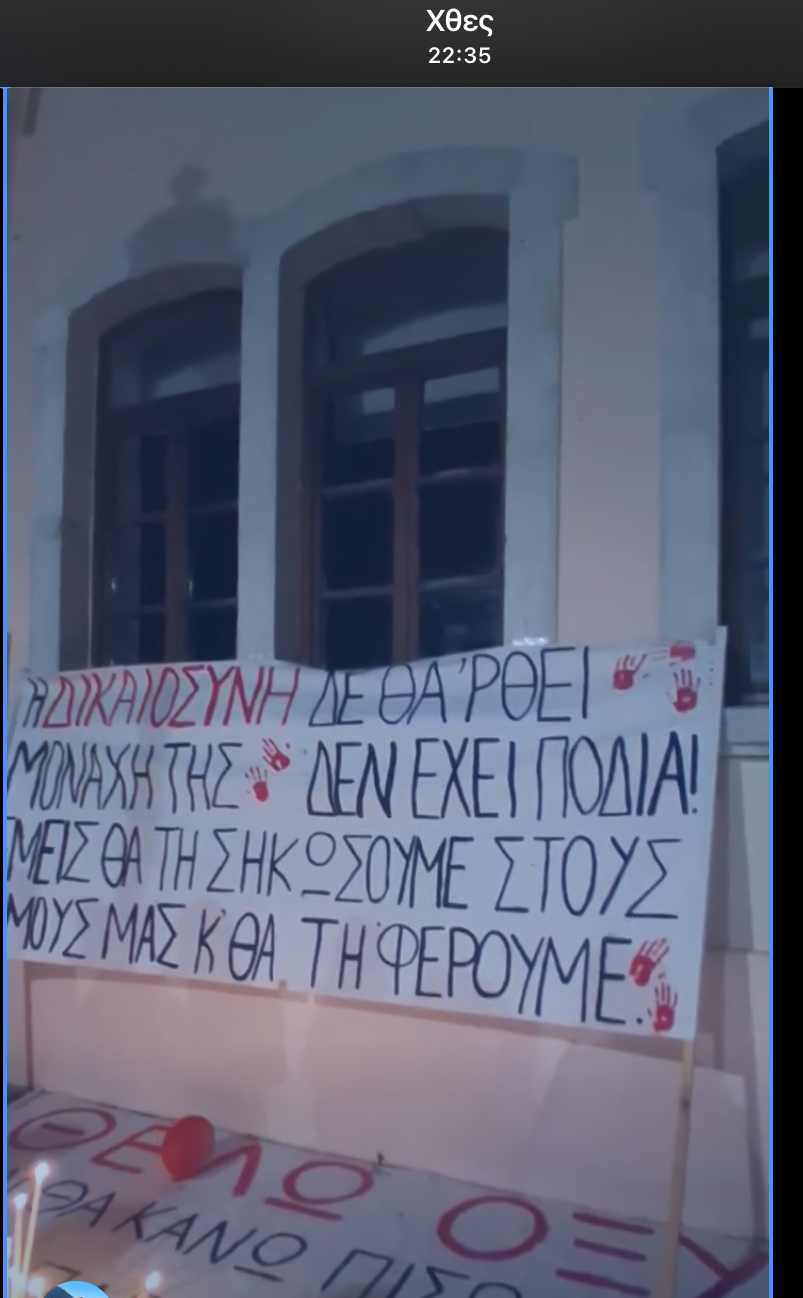 Χθες
22:35
Η ΔΙΚΑΙΟΣΥΝΗ ΔΕ ΘΑ 'ΡΘΕΙ
ΜΟΝΑΧΗ ΤΗΣ ΔΕΝ ΕΧΕΙ ΠΟΔΙΑ!
ΜΕΙΣ ΘΑ ΤΗ ΣΗΚΩΣΟΥΜΕ ΣΤΟΥΣ
ΜΟΥΣ ΜΑΣ Κ' ΘΑ ΤΗ ΦΕΡΟΥΜΕ.
ΘΕΛΩ ΟΞΥ
ΘΑ ΚΑΝΩ ΠΙΣΩ